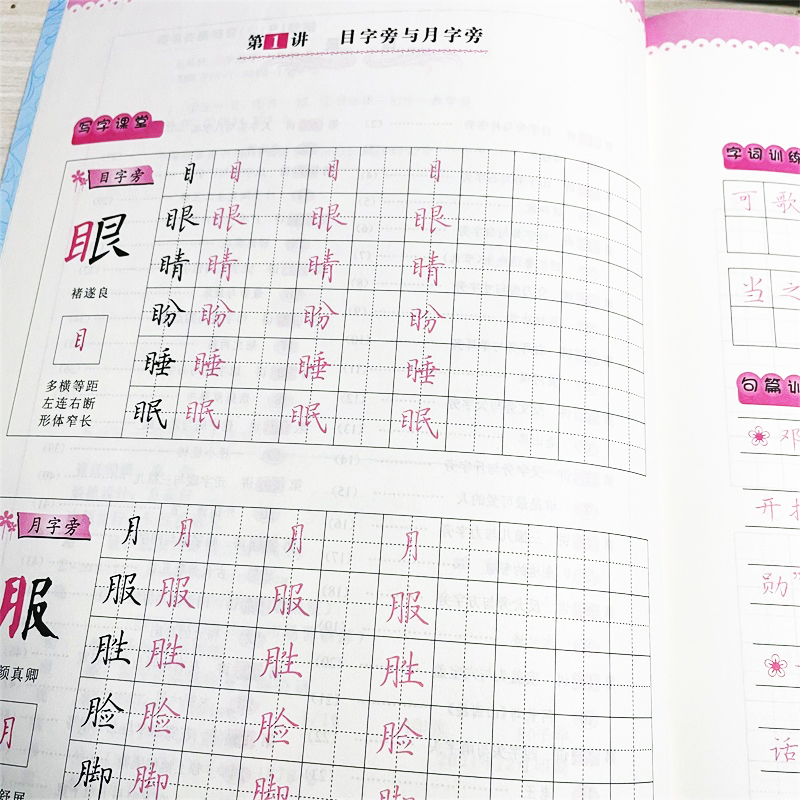 第1讲 目字旁与月字旁
写字课堂
目字旁
眼
褚遂良
目
多横等距
左连右断
形体窄长
目 目 目 目
眼 眼 眼 眼
睛 睛 睛 睛
盼 盼 盼 盼
睡 睡 睡 睡
眠 眠 眠 眠
月字旁
服
颜真卿
月
舒展
月 月 月 月
服 服 服 服
胜 胜 胜 胜
脸 脸 脸 脸
脚 脚 脚 脚
字词训练
可 歌
当 之
句篇训
邓
开
勋"
话